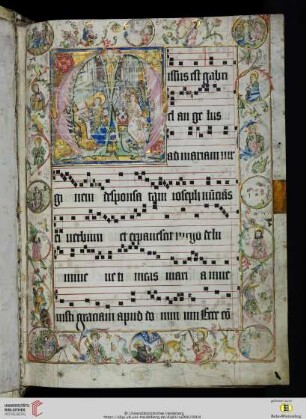 issus est gabri
el an ge lus
ad mariam vir
gi nem desponsa tam ioseph nūciās
ei verbum et expavescit virgo de lu
mine ne ti meas mari a inve
nisti graciam apud do mi num Ecce cō
© Universitätsbibliothek Heidelberg